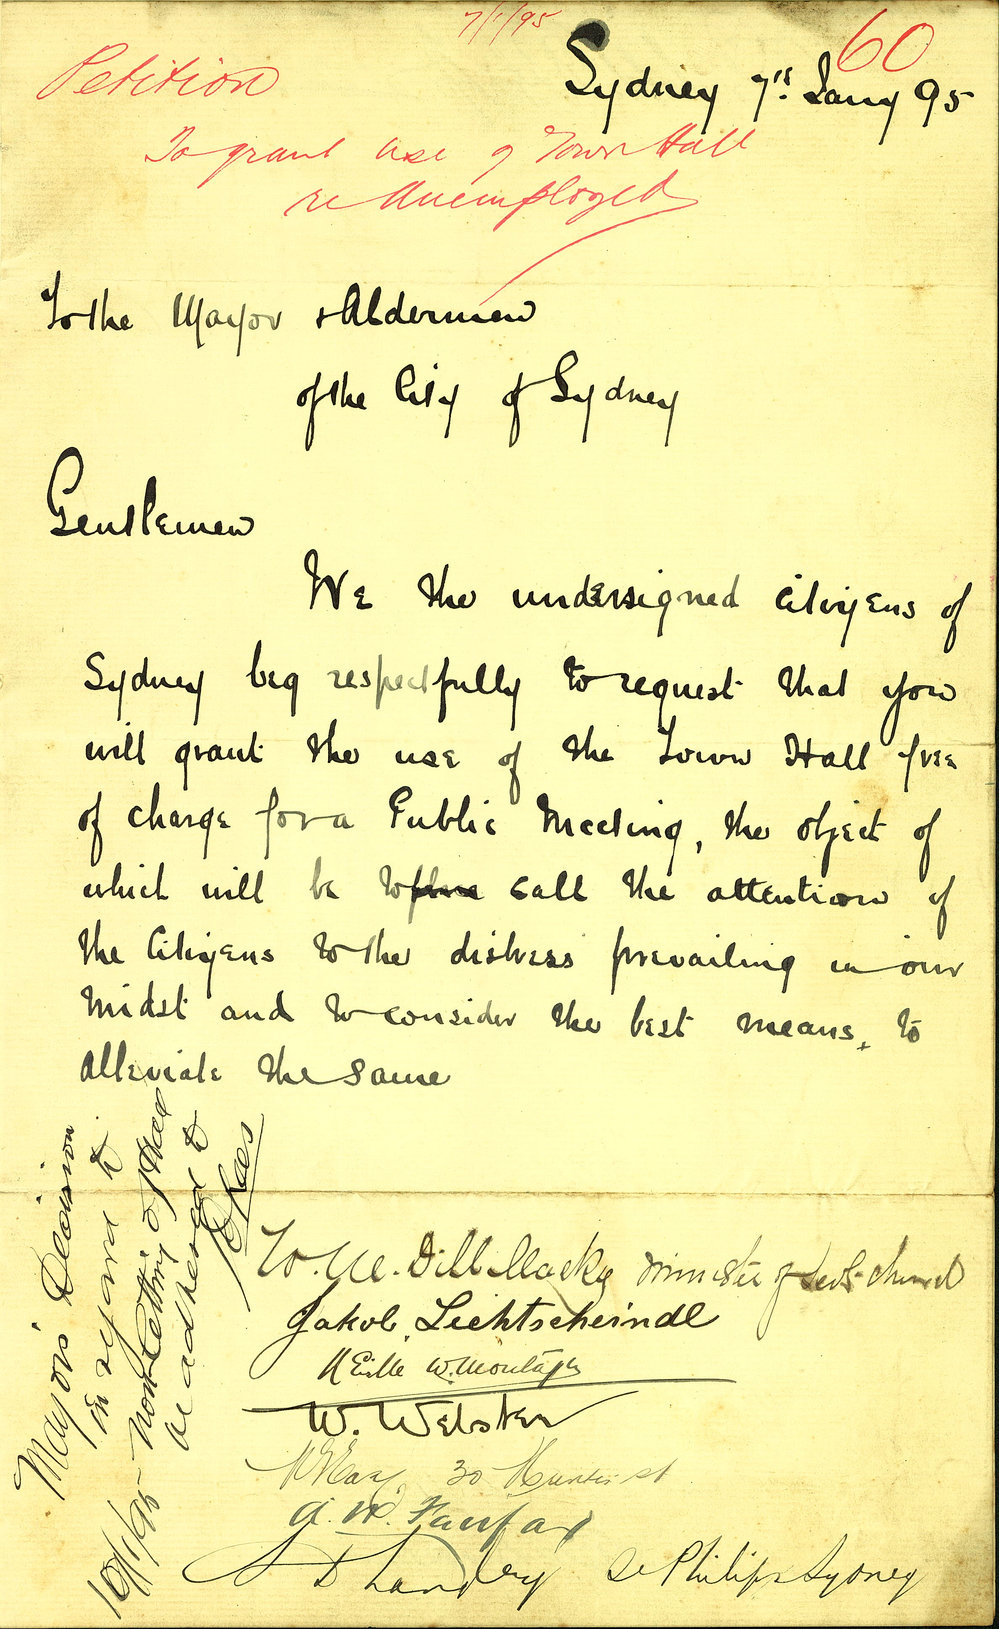 7/1/95
60
Petition
Sydney 7th Jany 95
To grant use of Town Hall
re Unemployed
To the Mayor & Aldermen
of the City of Sydney
Gentlemen
We the undersigned citizens of
Sydney beg respectfully to request that you
will grant the use of the Town Hall free
of charge for a Public Meeting, the object of
which will be to call the attention of
the Citizens to the distress prevailing in our
midst and to consider the best means, to
alleviate the same
Mayor's Decision
in regard to
non letting of Hall
be adhered to
10/1/95
W. M. Dill Macky Minister of Scots Church
Jakob Lichtscheindl
W. Montagu
W. Webster
30 Hunter St
A. W. Fairfax
St Philips Sydney